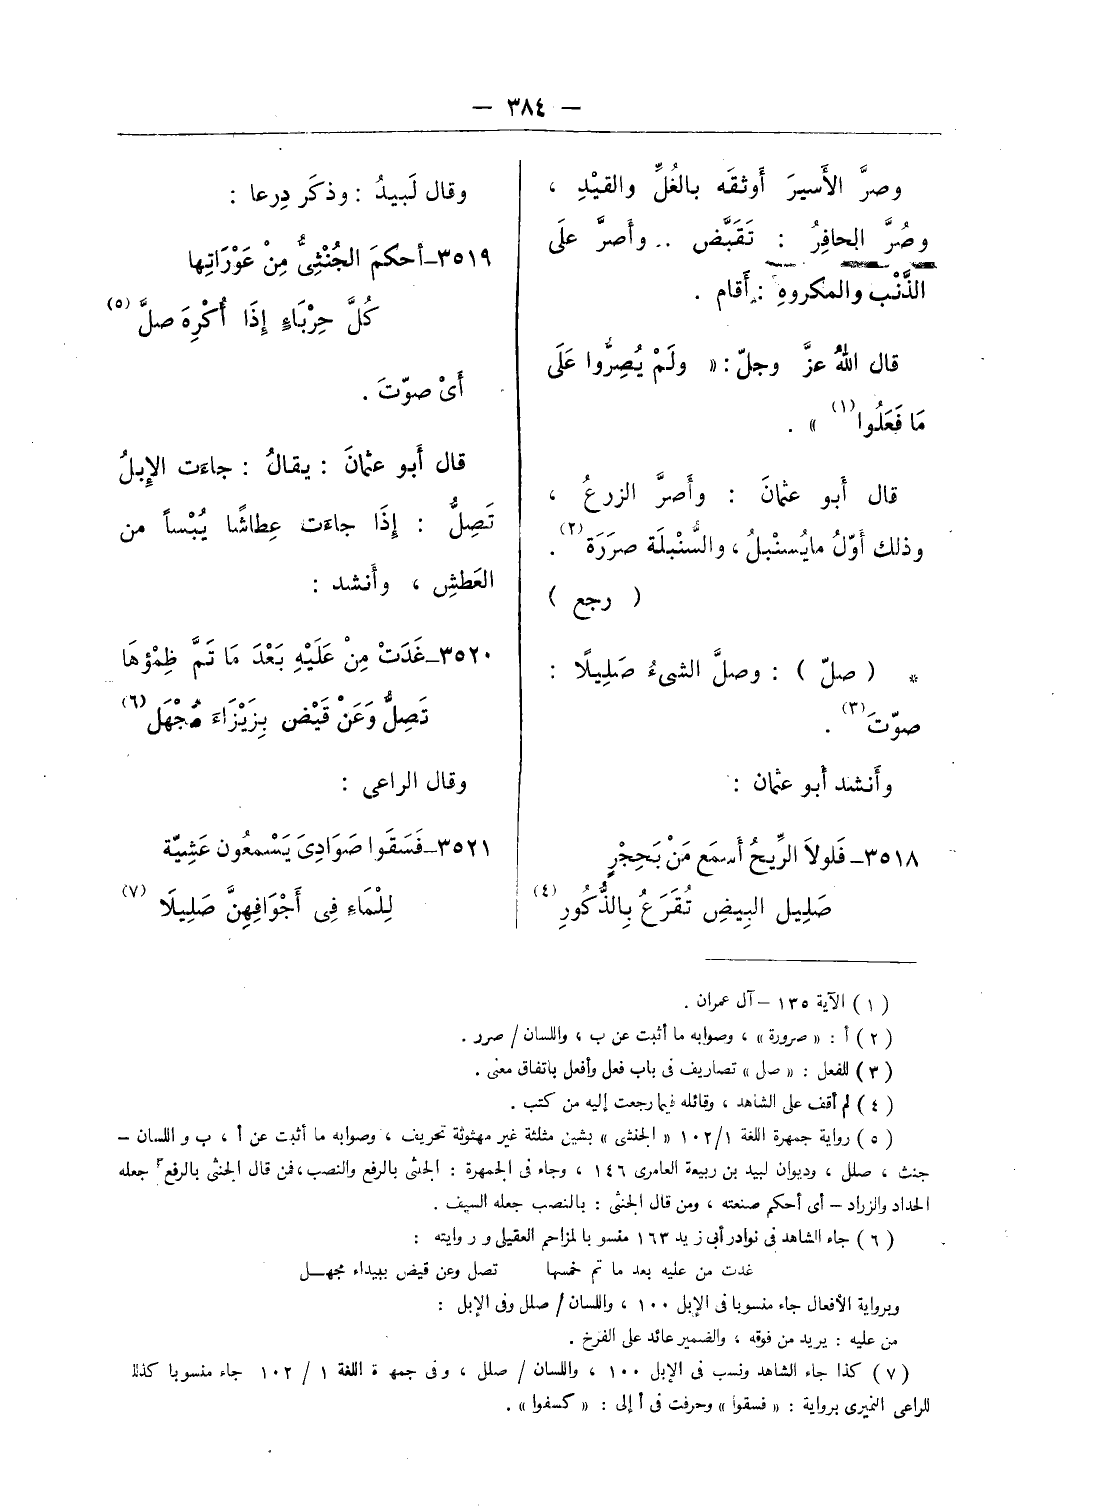 — ٣٨٤ —
وصرَّ الأَسيرَ أَوثقَه بالغُلِّ والقيْدِ ،
وصُرَّ الحافِرُ : تَقَبَّض .. وأَصرَّ علَى
الذَّنْب والمكروهِ : أَقام .
قال اللهُ عزَّ وجلّ : « ولَمْ يُصِرُّوا عَلَى
مَا فَعَلُوا (١) » .
قال أَبو عثمانَ : وأَصرَّ الزرعُ ،
وذلك أَوّلُ مايُسنْبلُ ، والسُّنْبلَة صرَرَة (٢) .
( رجع )
* ( صلّ ) : وصلَّ الشىءُ صَلِيلًا :
صوّتَ (٣) .
وأَنشد أَبو عثمان :
٣٥١٨ – فَلولاَ الرِّيحُ أَسمَع مَنْ بَحِجْرٍ
صَلِيل البِيضِ تُقرَعُ بِالذُّكُورِ (٤)
وقال لَبيدُ : وذكَر دِرعا :
٣٥١٩ – أحكمَ الجُنْثِىُّ مِنْ عَوْرَاتِها
كُلَّ حِرْبَاءٍ إِذَا أُكْرِهَ صلَّ (٥)
أَىْ صوّتَ .
قال أَبو عثمانَ : يقالُ : جاءَت الإِبلُ
تَصِلُّ : إِذَا جاءَت عِطاشًا يُبْساً من
العَطشِ ، وأَنشد :
٣٥٢٠ – غَدَتْ مِنْ عَلَيْهِ بَعْدَ مَا تَمَّ ظِمْؤهَا
تَصِلُّ وَعَنْ قَيْض بِزَيْزَاءَ مَجْهَل (٦)
وقال الراعى :
٣٥٢١ – فَسَقَوا صَوَادِىَ يَسْمعُون عَشِيَّة
لِلْمَاءِ فِى أَجْوَافِهِنَّ صَلِيلَا (٧)
( ١ ) الآية ١٣٥ – آل عمران .
( ٢ ) أ : « صرورة » ، وصوابه ما أثبت عن ب ، واللسان / صرر .
( ٣ ) للفعل : « صل » تصاريف فى باب فعل وأفعل باتفاق معنى .
( ٤ ) لم أقف على الشاهد ، وقائله فيما رجعت إليه من كتب .
( ٥ ) رواية جمهرة اللغة ١/ ١٠٢ « الجنشى » بشين مثلثة غير مهثوثة تحريف ، وصوابه ما أثبت عن أ ، ب و اللسان –
جنث ، صلل ، وديوان لبيد بن ربيعة العامرى ١٤٦ ، وجاء فى الجمهرة : الجنثى بالرفع والنصب ، فمن قال الجنثى بالرفع جعله
الحداد والزراد – أى أحكم صنعته ، ومن قال الجنثى : بالنصب جعله السيف .
( ٦ ) جاء الشاهد فى نوادر أبى زيد ١٦٣ منسو با لمزاحم العقيلى و ر وايته :
غدت من عليه بعد ما تم خمسها تصل وعن قيض ببيداء مجهـل
وبرواية الأفعال جاء منسوبا فى الإبل ١٠٠ ، واللسان / صلل وفى الإبل :
من عليه : يريد من فوقه ، والضمير عائد على الفرخ .
( ٧ ) كذا جاء الشاهد ونسب فى الإبل ١٠٠ ، واللسان / صلل ، وفى جمهـ ة اللغة ١ / ١٠٢ جاء منسوبا كذلك
للراعى النميرى برواية : « فسقوا » وحرفت فى أ إلى : « كسفوا » .